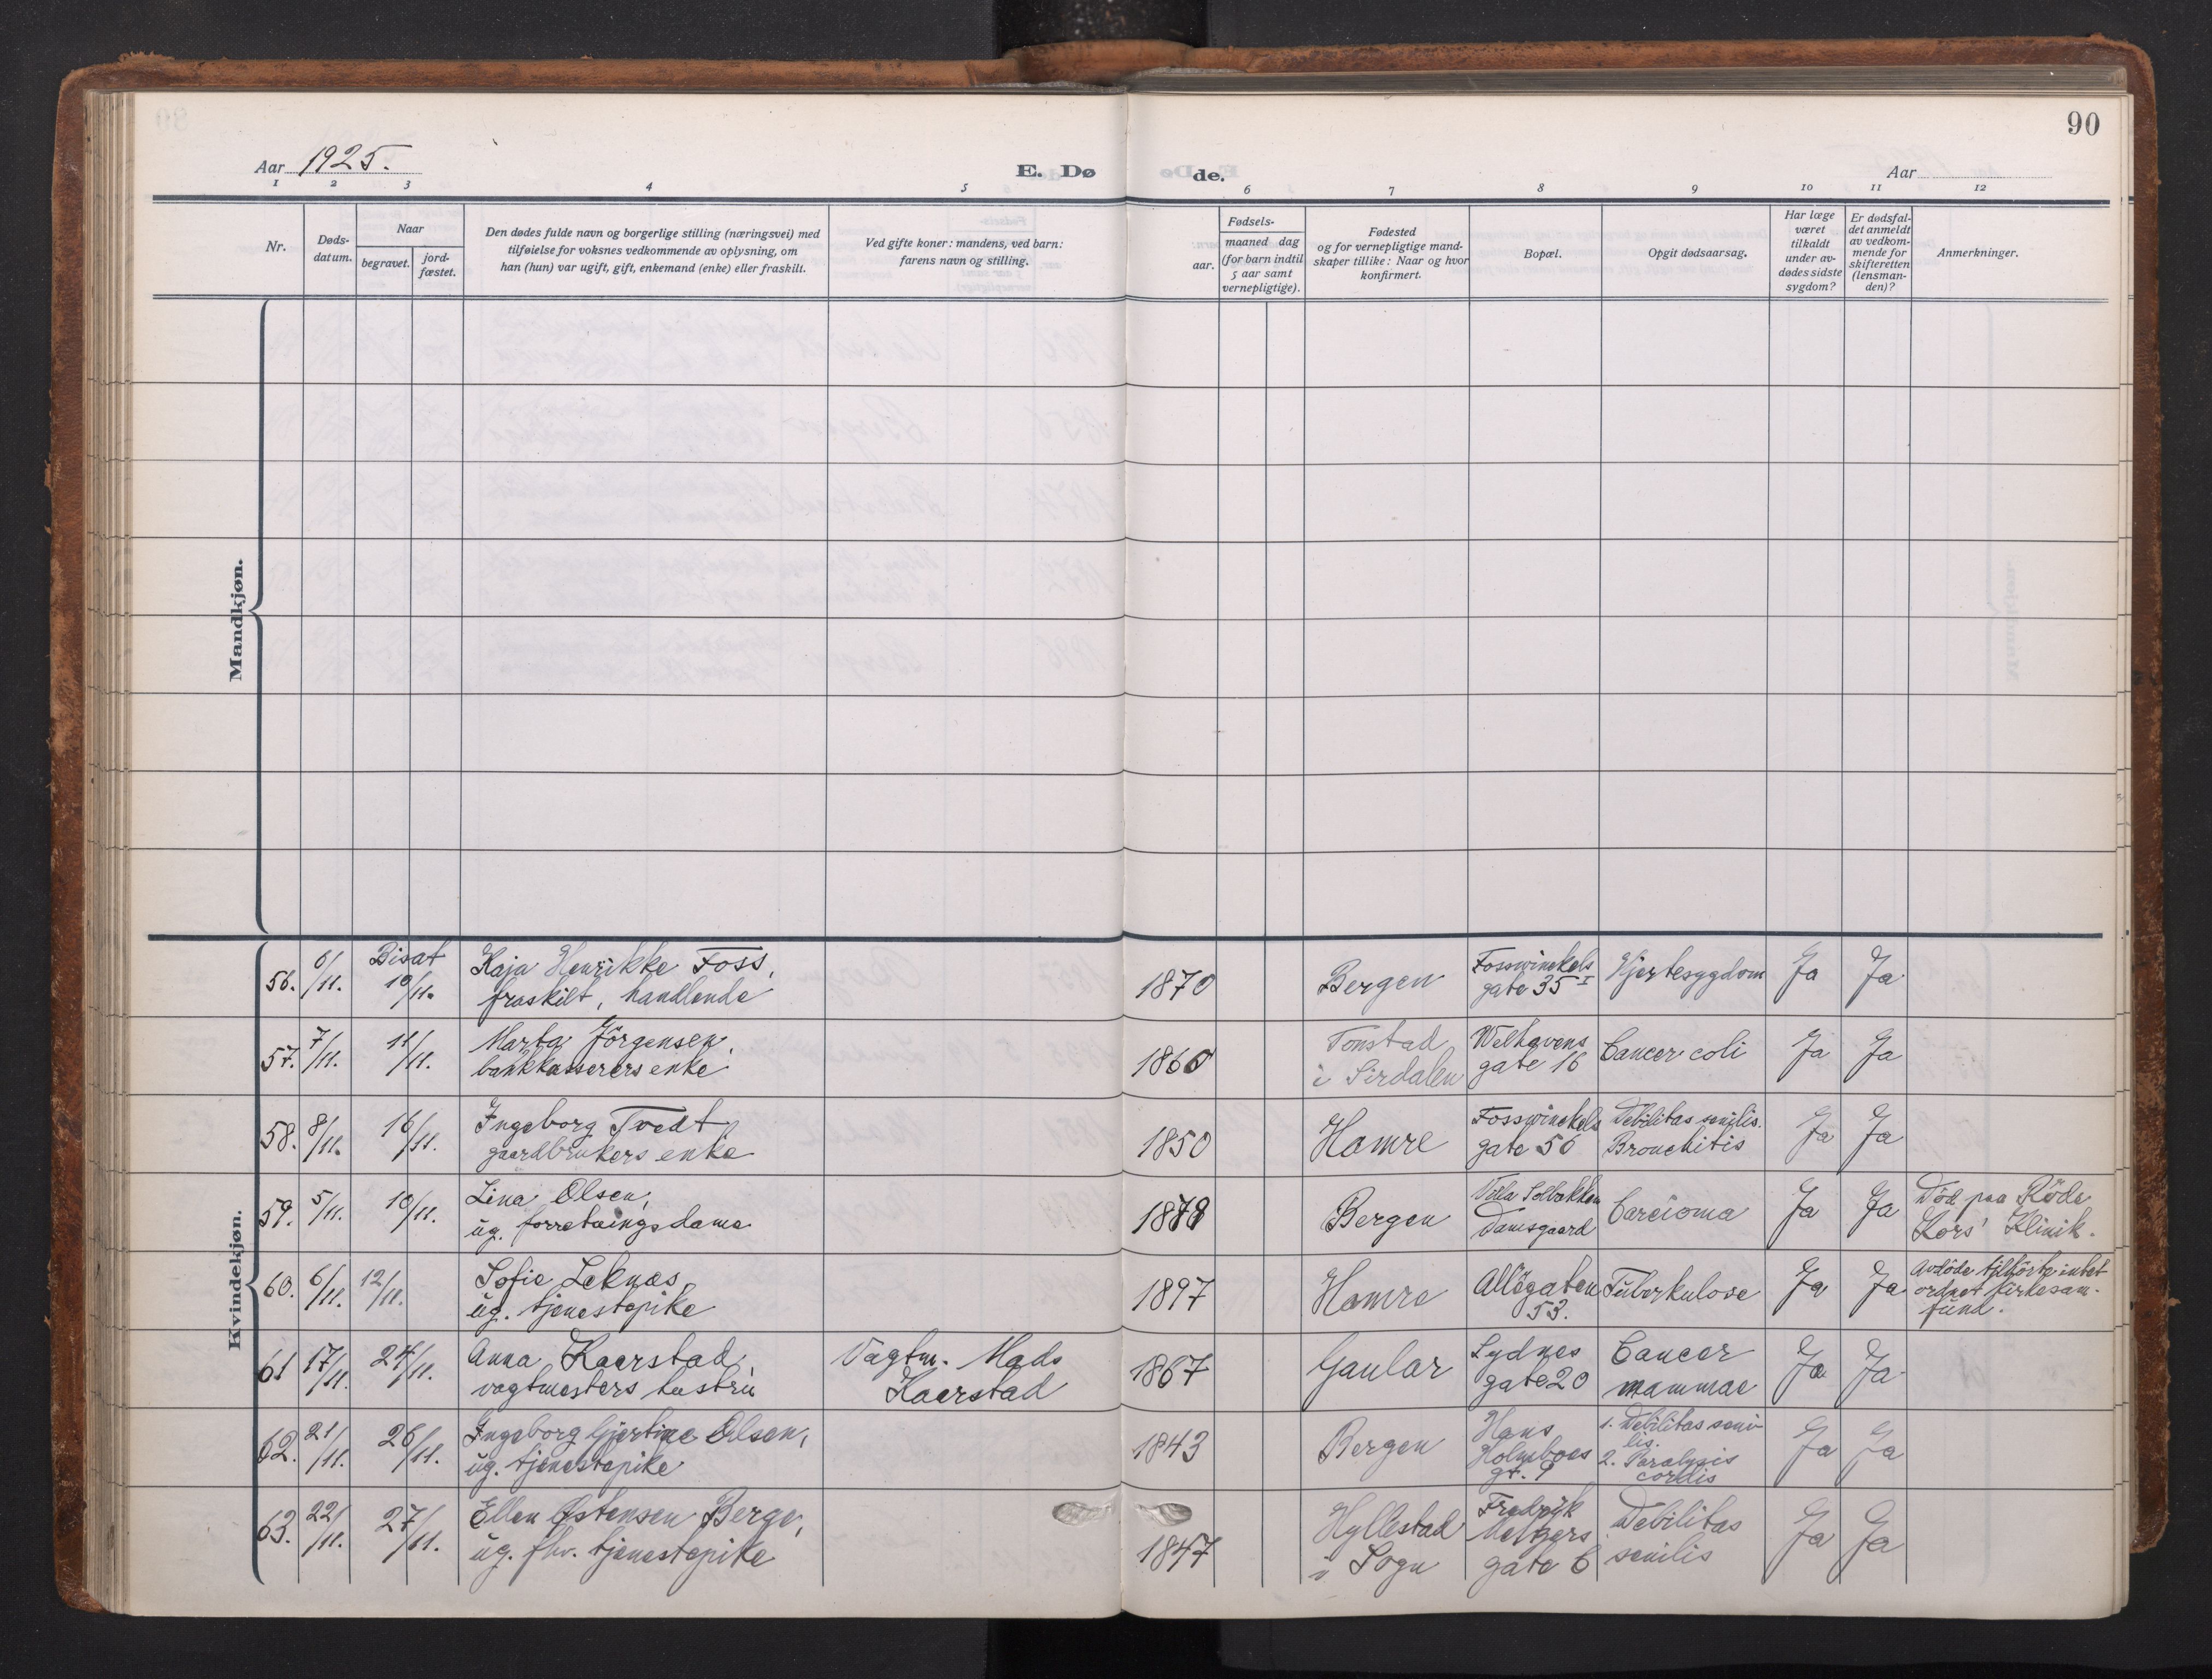 90
Aar 1925.
E. Dø
de.
Aar
1 2 3 4 5 6 7 8 9 10 11 12
Nr.
Døds-
datum.
Naar
begravet.
jord-
fæstet.
Den dødes fulde navn og borgerlige stilling (næringsvei) med
tilføielse for voksnes vedkommende av oplysning, om
han (hun) var ugift, gift, enkemand (enke) eller fraskilt.
Ved gifte koner: mandens, ved barn:
farens navn og stilling.
Fødsels-
aar.
maaned dag
(for barn indtil
5 aar samt
vernepligtige).
Fødested
og for vernepligtige mand-
skaper tillike: Naar og hvor
konfirmert.
Bopæl.
Opgit dødsaarsag.
Har læge
været
tilkaldt
under av-
dødes sidste
sygdom?
Er dødsfal-
det anmeldt
av vedkom-
mende for
skifteretten
(lensman-
den)?
Anmerkninger.
Mandkjøn.
Kvindekjøn.
56. 6/11. Bisat 10/11.
Kaja Henrikke Foss,
fraskilt, handlende
1870
Bergen
Fosswinckels
gate 35 I
Hjertesygdom
Ja
Ja
57. 7/11. 11/11.
Marta Jörgensen,
bankkasserers enke
1860
Tonstad
i Sirdalen
Welhavens
gate 16
Cancer coli
Ja
Ja
58. 8/11. 16/11.
Ingeborg Tvedt
gaardbrukers enke
1850
Hamre
Fosswinckels
gate 56
Debilitas senilis.
Bronchitis
Ja
Ja
59. 5/11. 10/11.
Lina Olsen,
ug. forretningsdame
1878
Bergen
Villa Solbakken
Damsgaard
Carcioma
Ja
Ja
Död paa Röde
Kors' Klinik.
60. 6/11. 12/11.
Sofie Leknes,
ug. tjenestepike
1897
Hamre
Allégaten
53.
Tuberkulose
Ja
Ja
Avdöde tilhörte intet
ordnet kirkesam-
fund.
61 17/11. 24/11.
Anna Kaarstad,
vagtmesters hustru
Vagtm. Mads
Kaarstad
1867
Gaular
Sydnes
gate 20
Cancer
mammae
Ja
Ja
62. 21/11. 26/11.
Ingeborg Gjertine Olsen,
ug. tjenestepike
1843
Bergen
Hans
Holmboes
gt. 9
1. Debilitas seni-
lis.
2. Paralysis
cordis
Ja
Ja
63. 22/11. 27/11.
Ellen Østensen Berge,
ug. fhv. tjenestepike
1847
Hyllestad
i Sogn
Fredrik
Meltzers
gate 6
Debilitas
senilis
Ja
Ja